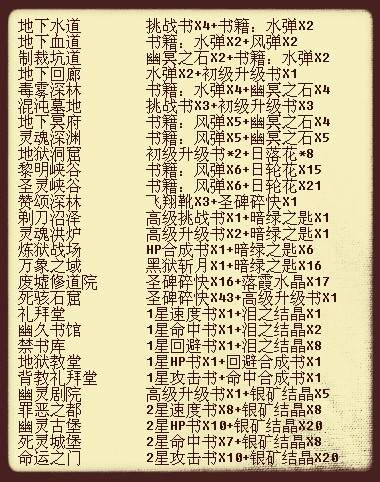 地下水道 挑战书X4+书籍：水弹X2
地下血道 书籍：水弹X2+风弹X2
制裁坑道 幽冥之石X2+书籍：水弹X2
地下回廊 水弹X2+初级升级书X1
毒雾深林 书籍：水弹X4+幽冥之石X4
混沌墓地 挑战书X3+初级升级书X3
地下冥府 书籍：风弹X5+幽冥之石X4
灵魂深渊 书籍：风弹X5+幽冥之石X5
地狱洞窟 初级升级书*2+日落花*8
黎明峡谷 书籍：风弹X6+日轮花X15
圣灵峡谷 书籍：风弹X6+日轮花X21
赞颂深林 飞翔靴X3+圣碑碎快X1
剃刀沼泽 高级挑战书X1+暗绿之匙X1
灵魂洪炉 高级升级书X2+暗绿之匙X1
炼狱战场 HP合成书X1+暗绿之匙X6
万象之域 黑狱斩月X1+暗绿之匙X16
废墟修道院 圣碑碎快X16+落霞水晶X17
死骇石窟 圣碑碎快X43+高级升级书X1
礼拜堂 1星速度书X1+泪之结晶X1
幽久书馆 1星命中书X1+泪之结晶X2
禁书库 1星回避书X1+泪之结晶X8
地狱教堂 1星HP书X1+回避合成书X1
背教礼拜堂 1星攻击书+命中合成书X1
幽灵剧院 高级升级书X1+银矿结晶X5
罪恶之都 2星速度书X8+银矿结晶X8
幽灵古堡 2星HP书X10+银矿结晶X20
死灵城堡 2星命中书X7+银矿结晶X8
命运之门 2星攻击书X10+银矿结晶X20